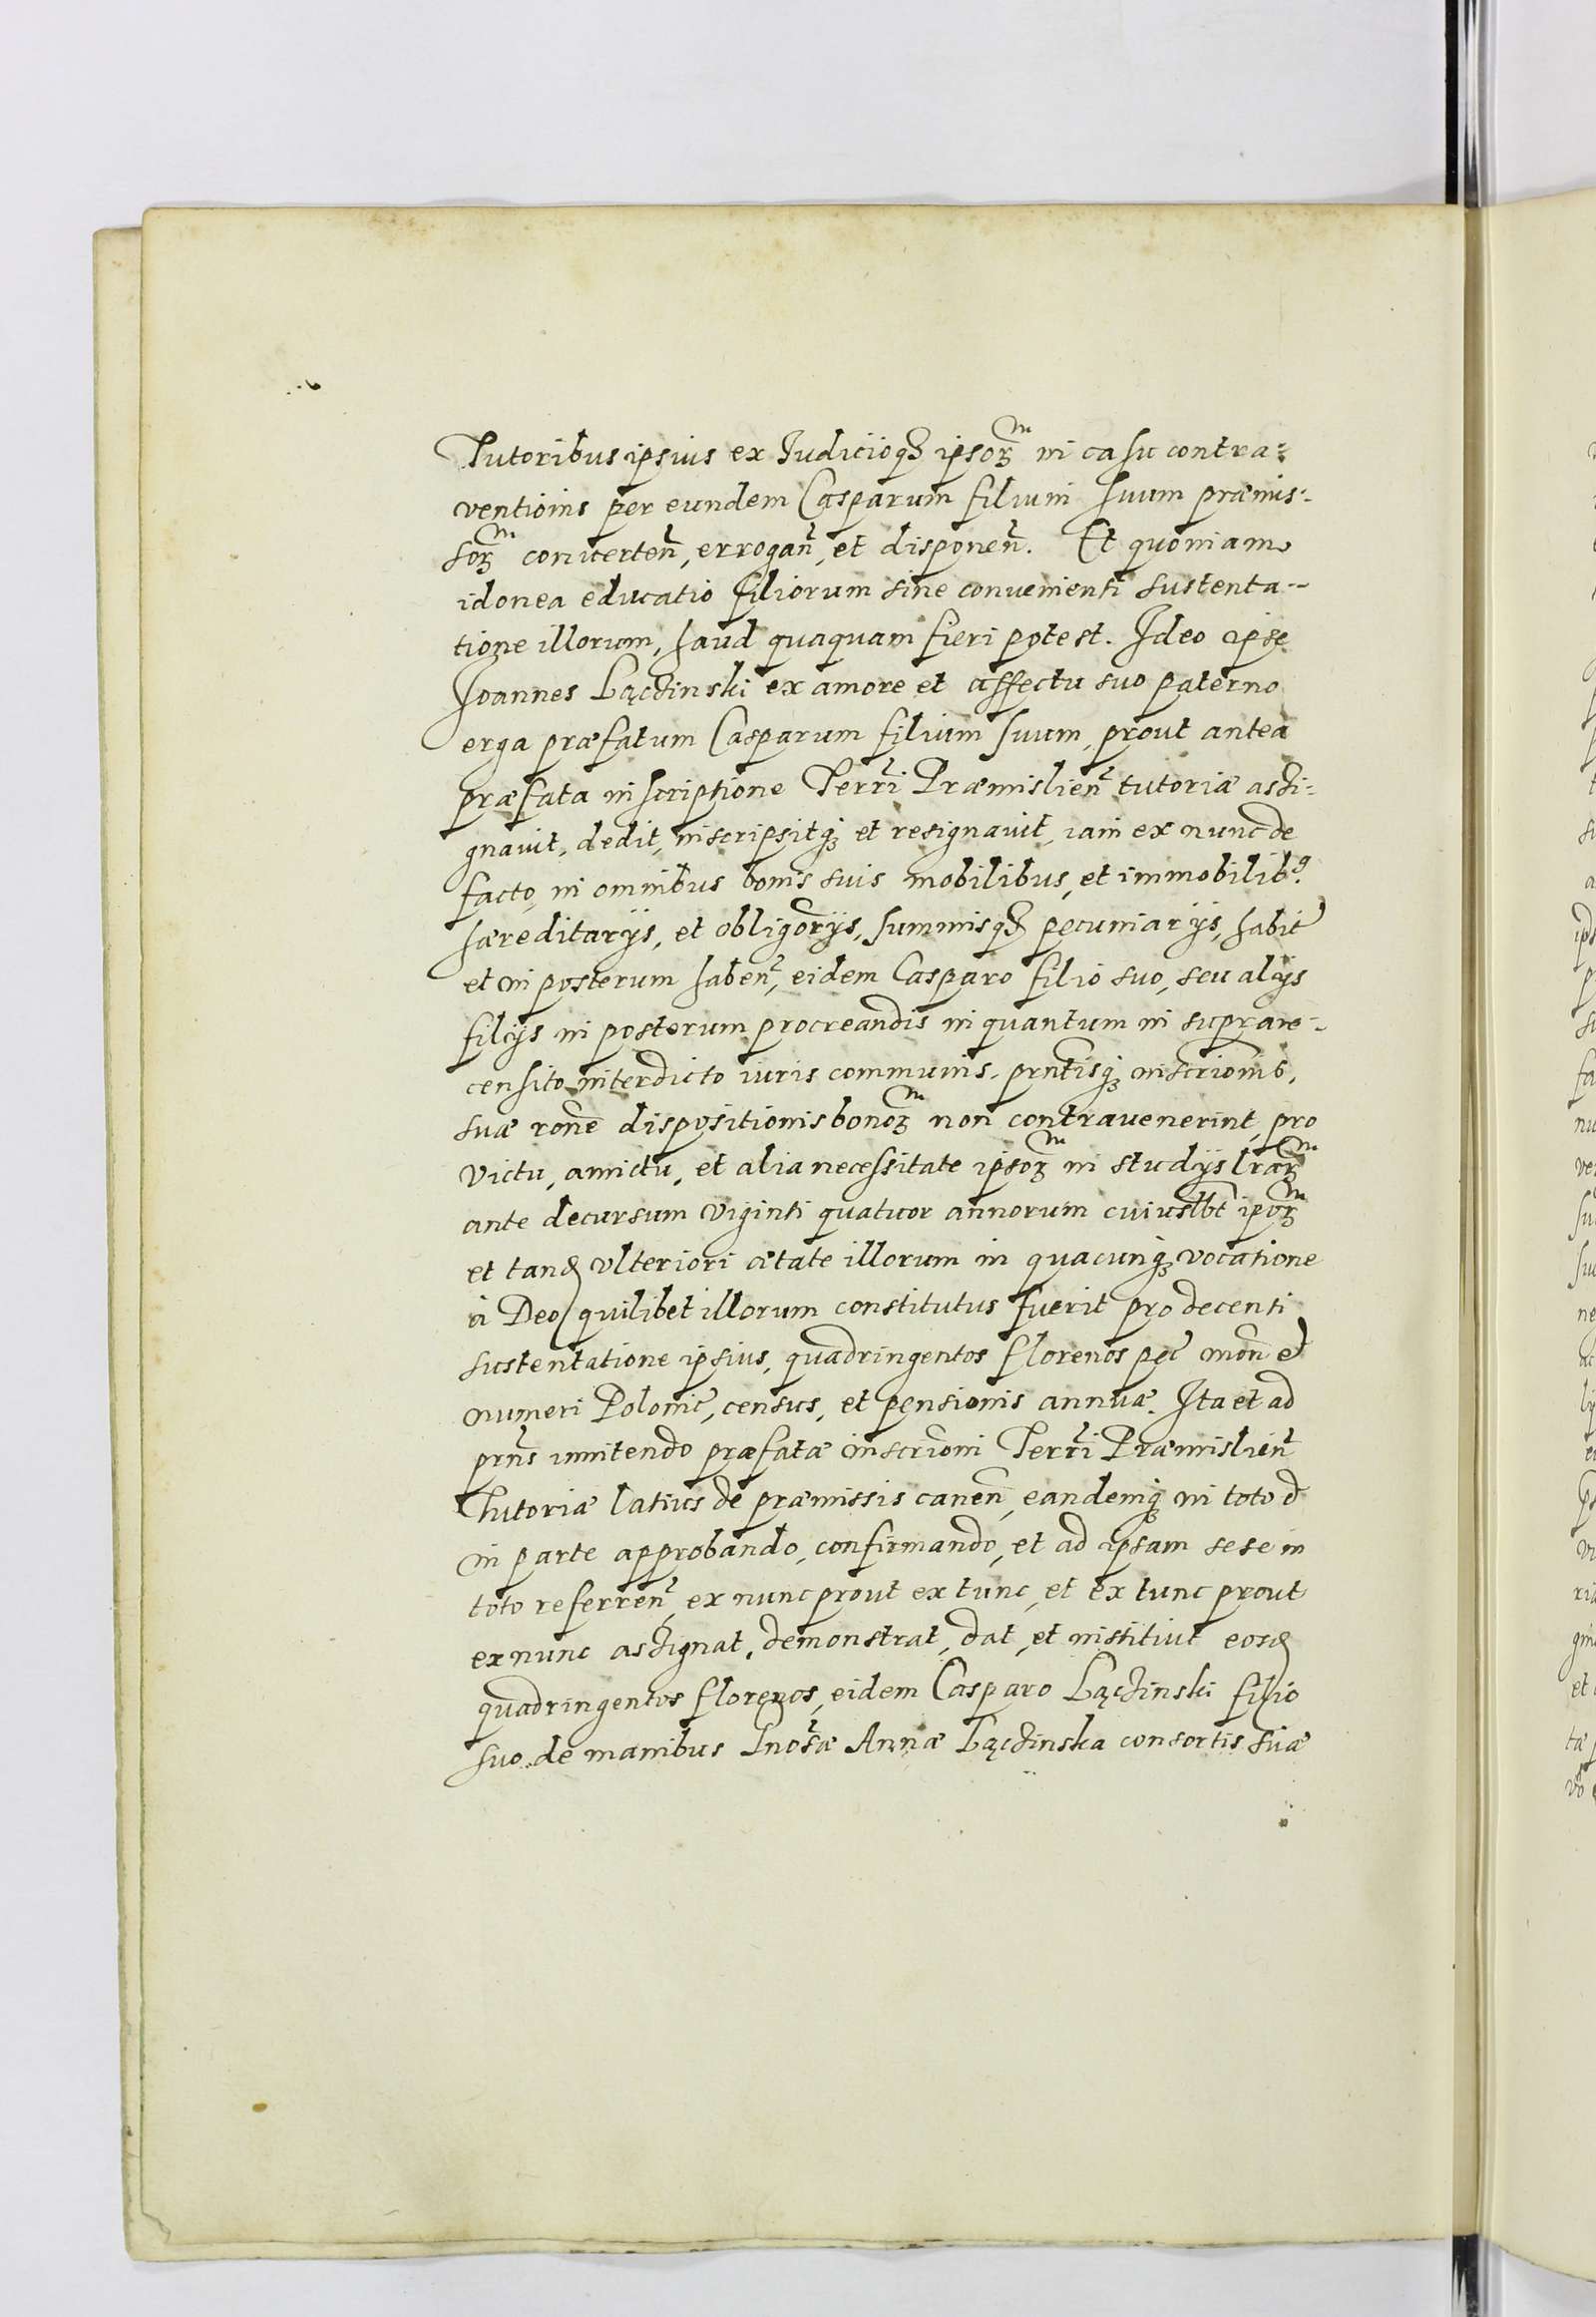 Tutoribus ipsius ex Judicioq₃ ipsoꝝ^m in casu contra=
ventionis per eundem Casparum filium suum præmis-
soꝝ^m conuerteñ, erroganñ, et disponeñ. Et quoniam
idonea educatio filiorum sine conuenienti sustenta--
tione illorum, haud quaquam fieri potest. Ideo ipse
Joannes Łączinski ex amore et affectu suo paterno
erga præfatum Casparum filium suum, prout antea
præfata inscriptione Terrĩ Præmislień tutoriæ assi=
gnauit, dedit, inscripsitq₃ et resignauit, iam ex nunc de
facto, in omnibus bonis suis mobilibus, et immobilib⁹.
hæreditarijs, et obligõrijs, summisq₃ pecuniarijs, habit̃
et in posterum habeñ, eidem Casparo filio suo, seu alijs
filijs in posterum procreandis in quantum in suprare-
censito interdicto iuris communis, prñtisq₃ inscriõnis,
suæ rõne dispositionis bonoꝝ^m non contrauenerint, pro
victu, amictu, et alia necessitate ipsoꝝ^m in studijs lraꝝ^m
ante decursum viginti quatuor annorum cuiuslbt ipoꝝ^m
et tand ulteriori ætate illorum in quacunq₃ vocatione
à Deo quilibet illorum constitutus fuerit pro decenti
sustentatione ipsius, quadringentos florenos pec̃ moñ et
numeri Polonic̃, census, et pensionis annuæ. Ita et ad
prñs innitendo præfatæ inscriõni Terrĩ Præmislień
Tutoriæ latius de præmissis caneñ, eandemq₃ in toto et
in parte approbando, confirmando, et ad ipsam sese in
toto referreñ, ex nunc prout ex tunc, et ex tunc prout
ex nunc assignat, demonstrat, dat, et instituit eosd
quadringentos florenos, eidem Casparo Łączinski filio
suo de manibus Gnosæ Annæ Łączinska consortis suæ